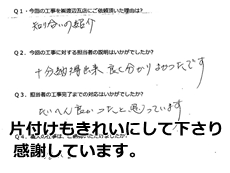 Q1・今回の工事を㈱渡辺瓦店にご依頼頂いた理由は?
知り合いの紹介
Q2・今回の工事に対する担当者の説明はいかがでしたか?
十分納得出来 良く分かりよかったです
Q3・担当者の工事完了までの対応はいかがでしたか?
たいへん良かったと思っています
片付けもきれいにして下さり
感謝しています。